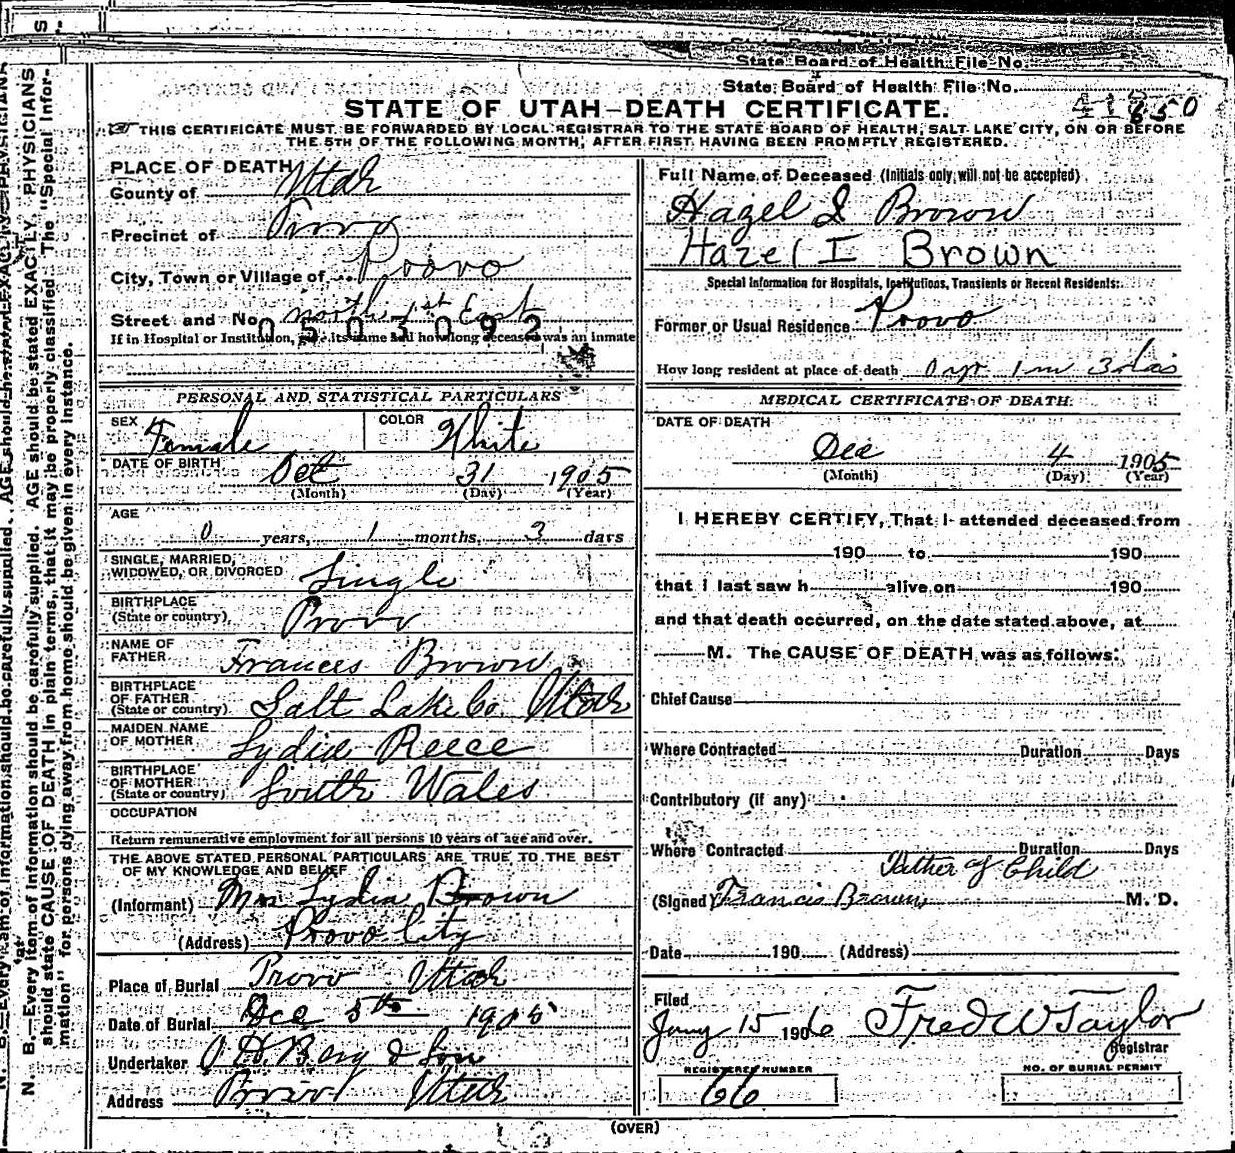 State Board of Health File No.
State Board of Health File No.
STATE OF UTAH—DEATH CERTIFICATE.
THIS CERTIFICATE MUST BE FORWARDED BY LOCAL REGISTRAR TO THE STATE BOARD OF HEALTH, SALT LAKE CITY, ON OR BEFORE
THE 5TH OF THE FOLLOWING MONTH, AFTER FIRST HAVING BEEN PROMPTLY REGISTERED.
PLACE OF DEATH
County of Utah
Precinct of Provo
City, Town or Village of Provo
Street and No. North 1st East
0503092
If in Hospital or Institution, give its name and how long deceased was an inmate
PERSONAL AND STATISTICAL PARTICULARS
SEX Female COLOR White
DATE OF BIRTH Oct 31 1905
(Month) (Day) (Year)
AGE
0 years, 1 months, 3 days
SINGLE, MARRIED,
WIDOWED, OR DIVORCED Single
BIRTHPLACE
(State or country) Provo
NAME OF
FATHER Frances Brown
BIRTHPLACE
OF FATHER
(State or country) Salt Lake Co Utah
MAIDEN NAME
OF MOTHER Lydia Reece
BIRTHPLACE
OF MOTHER
(State or country) South Wales
OCCUPATION
Return remunerative employment for all persons 10 years of age and over.
THE ABOVE STATED PERSONAL PARTICULARS ARE TRUE TO THE BEST
OF MY KNOWLEDGE AND BELIEF
(Informant) Mrs Lydia Brown
(Address) Provo City
Place of Burial Provo Utah
Date of Burial Dec 5th 1905
Undertaker O H Berg & Son
Address Provo Utah
Full Name of Deceased (Initials only will not be accepted)
Hazel I Brown
Hazel I Brown
Special Information for Hospitals, Institutions, Transients or Recent Residents:
Former or Usual Residence Provo
How long resident at place of death 0 yr 1 m 3 das
MEDICAL CERTIFICATE OF DEATH
DATE OF DEATH
Dec 4 1905
(Month) (Day) (Year)
I HEREBY CERTIFY, That I attended deceased from
190 to 190
that I last saw h alive on 190
and that death occurred, on the date stated above, at
M. The CAUSE OF DEATH was as follows:
Chief Cause
Where Contracted Duration Days
Contributory (if any)
Where Contracted Duration Days
Father of Child
(Signed) Francis Brown M. D.
Date 190 (Address)
Filed
Jany 15 1906 Fred W Taylor
Registrar
REGISTERED NUMBER
66
NO. OF BURIAL PERMIT
(OVER)
N. B.—Every item of information should be carefully supplied. AGE should be stated EXACTLY. PHYSICIANS
should state CAUSE OF DEATH in plain terms, that it may be properly classified. The "Special Infor-
mation" for persons dying away from home should be given in every instance.